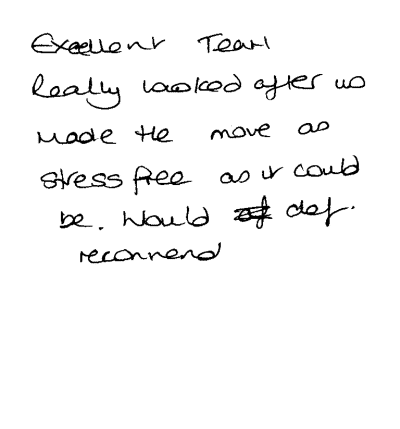 Excellent Team
Really looked after us
Made the move as
stress free as it could
be. Would def.
recommend